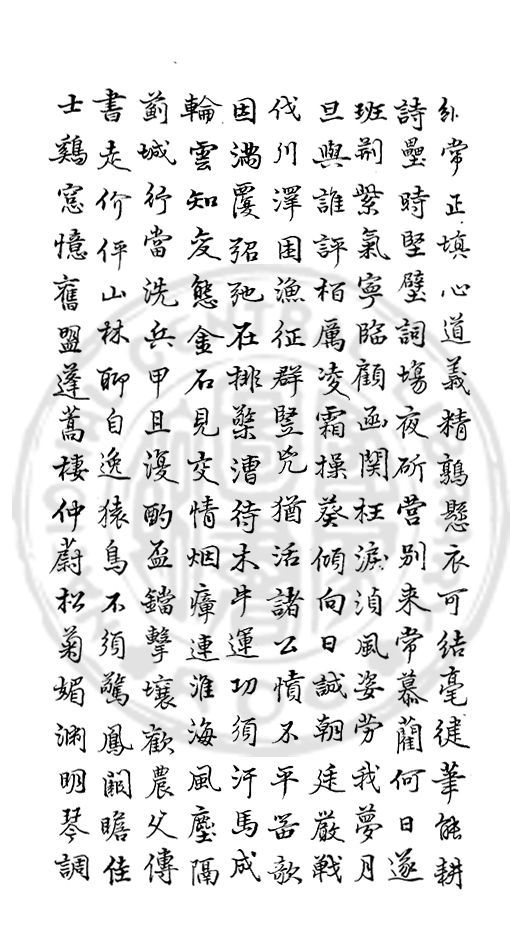 常正填心道義精鶉懸衣可結毫健筆能耕
詩壘時堅壁詞塲夜斫営別来常慕藺何日遂
班荊紫氣寧臨顧函関枉淚風姿労我夢月
旦與誰評栢厲凌霜操葵傾向日誠朝廷厳戦
伐川澤困漁征群豎兕猶活諸公憤不平器欹
因満覆弨弛在排檠漕待木牛運功須汗馬成
輪雲知友態金石見交情烟瘴連淮海風塵隔
薊城行當洗兵甲且漫酌盃鐺擊壤歡農父傳
書走价伻山林聊自逸猿鳥不須驚鳳闕瞻佳
士鷄窓憶舊盟蓬蒿棲仲蔚松菊媚淵明琴調